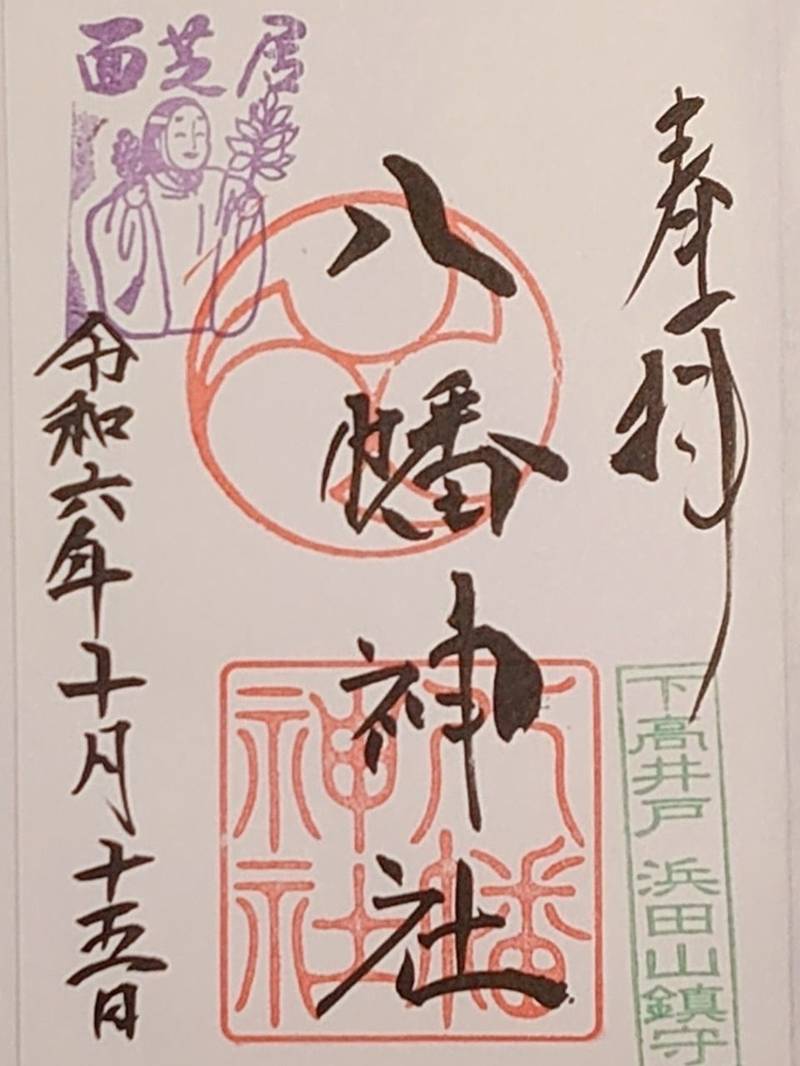 奉拝
下高井戸 浜田山鎮守
八幡神社
八幡神社
面芝居
令和六年十月十五日